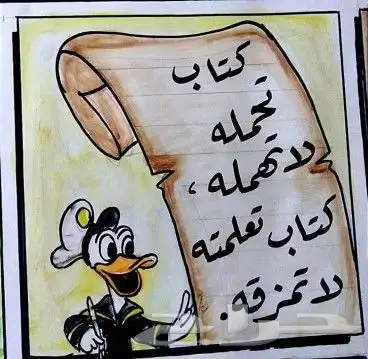 كتاب
تحمله
لا تهمله ،
كتاب تعلمته
لا تمزقه .
حراج